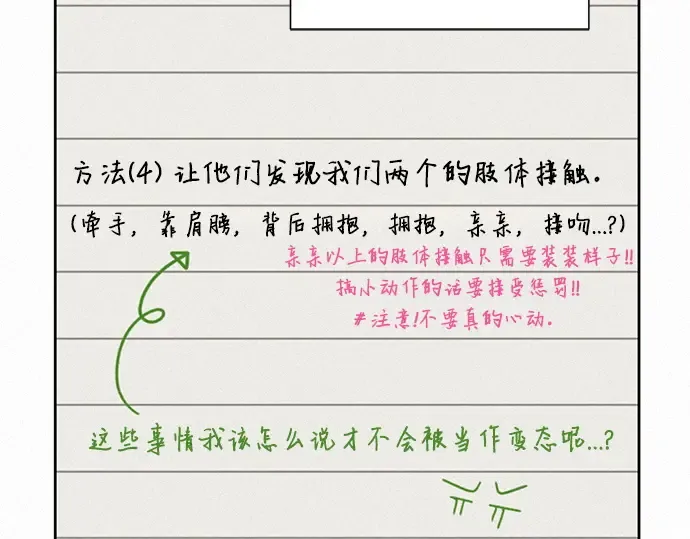 方法(4) 让他们发现我们两个的肢体接触.
(牵手, 靠肩膀, 背后拥抱, 拥抱, 亲亲, 接吻...?)
亲亲以上的肢体接触只需要装装样子!!
搞小动作的话要接受惩罚!!
#注意!不要真的心动.
这些事情我该怎么说才不会被当作变态呢...?